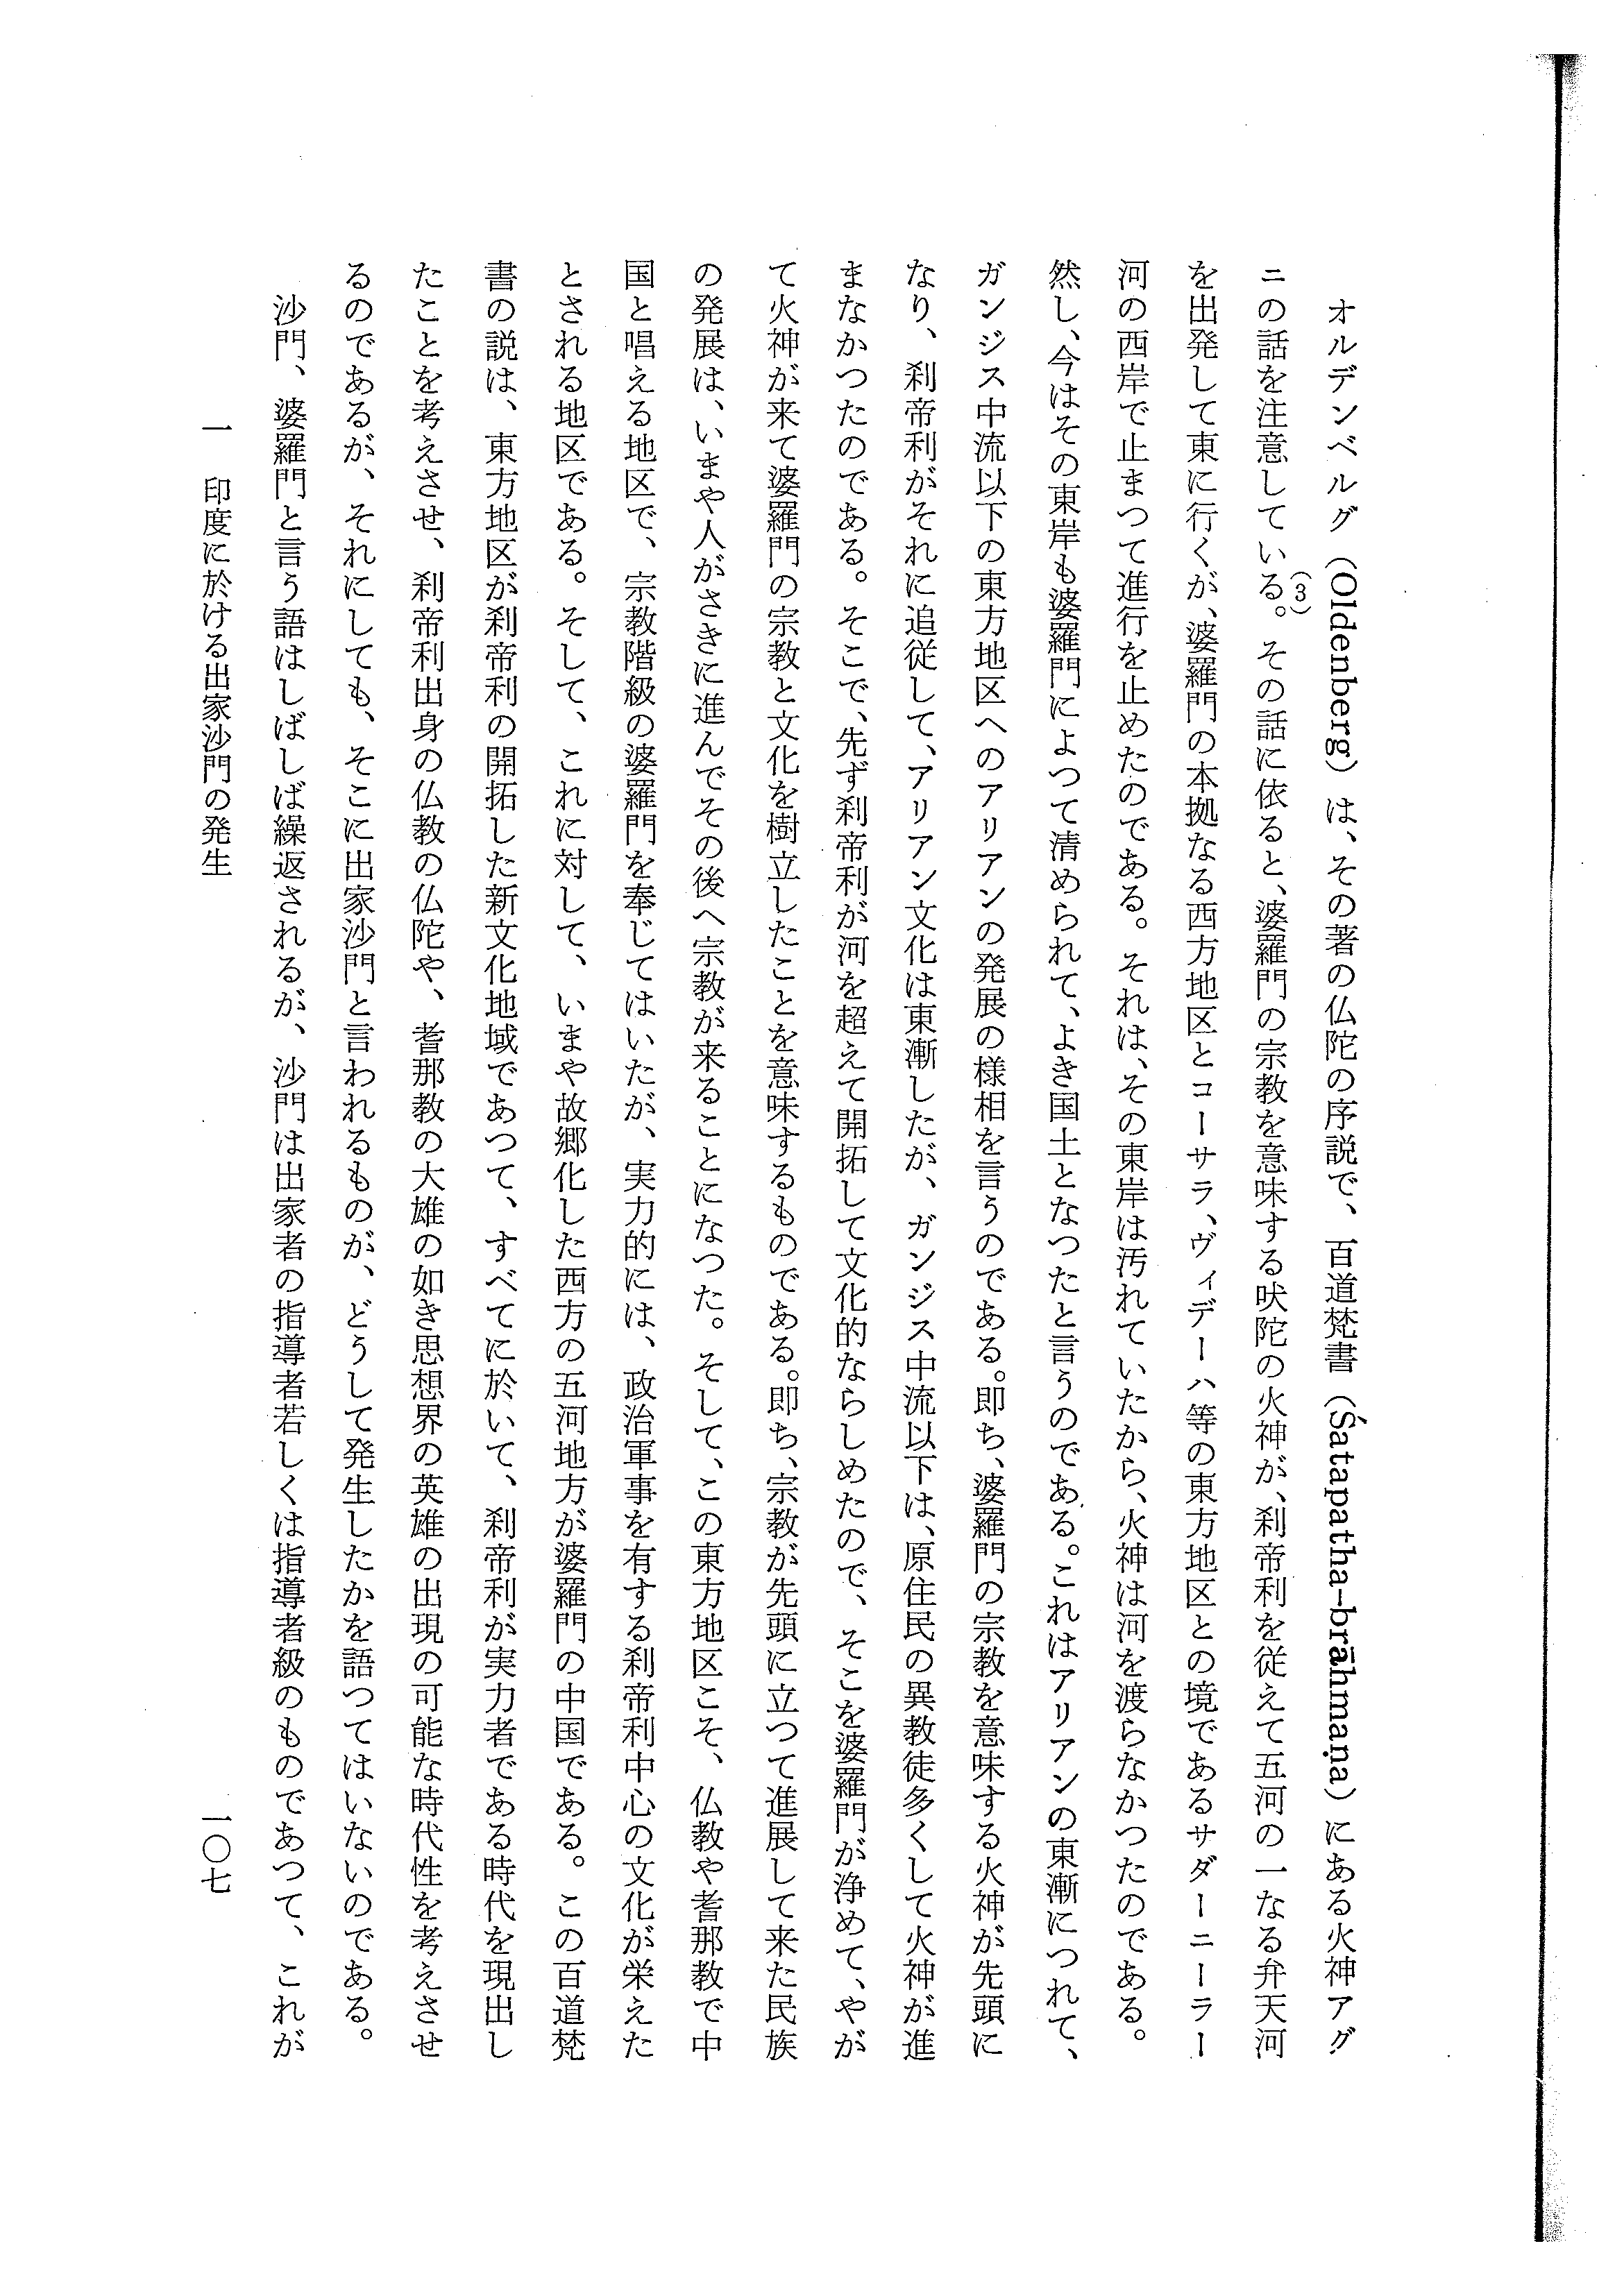 オルデンベルグ（Oldenberg）は、その著の仏陀の序説で、百道梵書（Śatapatha-brāhmaṇa）にある火神アグ
ニの話を注意している。(3)その話に依ると、婆羅門の宗教を意味する吠陀の火神が、刹帝利を従えて五河の一なる弁天河
を出発して東に行くが、婆羅門の本拠なる西方地区とコーサラ、ヴィデーハ等の東方地区との境であるサダーニーラー
河の西岸で止まつて進行を止めたのである。それは、その東岸は汚れていたから、火神は河を渡らなかつたのである。
然し、今はその東岸も婆羅門によつて清められて、よき国土となつたと言うのである。これはアリアンの東漸につれて、
ガンジス中流以下の東方地区へのアリアンの発展の様相を言うのである。即ち、婆羅門の宗教を意味する火神が先頭に
なり、刹帝利がそれに追従して、アリアン文化は東漸したが、ガンジス中流以下は、原住民の異教徒多くして火神が進
まなかつたのである。そこで、先ず刹帝利が河を超えて開拓して文化的ならしめたので、そこを婆羅門が浄めて、やが
て火神が来て婆羅門の宗教と文化を樹立したことを意味するものである。即ち、宗教が先頭に立つて進展して来た民族
の発展は、いまや人がさきに進んでその後へ宗教が来ることになつた。そして、この東方地区こそ、仏教や耆那教で中
国と唱える地区で、宗教階級の婆羅門を奉じてはいたが、実力的には、政治軍事を有する利帝利中心の文化が栄えた
とされる地区である。そして、これに対して、いまや故郷化した西方の五河地方が婆羅門の中国である。この百道梵
書の説は、東方地区が刹帝利の開拓した新文化地域であつて、すべてに於いて、刹帝利が実力者である時代を現出し
たことを考えさせ、刹帝利出身の仏教の仏陀や、耆那教の大雄の如き思想界の英雄の出現の可能な時代性を考えさせ
るのであるが、それにしても、そこに出家沙門と言われるものが、どうして発生したかを語つてはいないのである。
沙門、婆羅門と言う語はしばしば繰返されるが、沙門は出家者の指導者若しくは指導者級のものであつて、これが
一　印度に於ける出家沙門の発生
一〇七